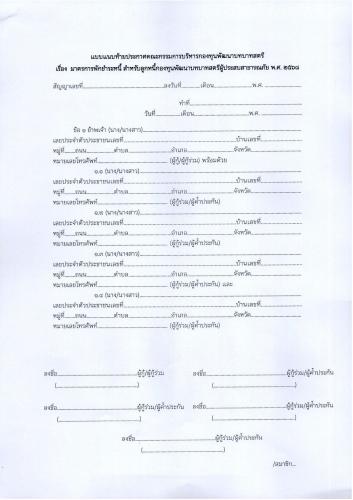 แบบแนบท้ายประกาศคณะกรรมการบริหารกองทุนพัฒนาบทบาทสตรี
เรื่อง มาตรการพักชำระหนี้ สำหรับลูกหนี้กองทุนพัฒนาบทบาทสตรีผู้ประสบสาธารณภัย พ.ศ. ๒๕๖๘
สัญญาเลขที่..........ลงวันที่..........เดือน..........พ.ศ. ..........
ทำที่..........
วันที่..........เดือน..........พ.ศ. ..........
ข้อ ๑ ข้าพเจ้า (นาง/นางสาว)..........
เลขประจำตัวประชาชนเลขที่..........บ้านเลขที่..........
หมู่ที่.....ถนน..........ตำบล..........อำเภอ..........จังหวัด..........
หมายเลขโทรศัพท์.......... (ผู้กู้/ผู้กู้ร่วม) พร้อมด้วย
๑.๑ (นาง/นางสาว)..........
เลขประจำตัวประชาชนเลขที่..........บ้านเลขที่..........
หมู่ที่.....ถนน..........ตำบล..........อำเภอ..........จังหวัด..........
หมายเลขโทรศัพท์.......... (ผู้กู้ร่วม/ผู้ค้ำประกัน)
๑.๒ (นาง/นางสาว)..........
เลขประจำตัวประชาชนเลขที่..........บ้านเลขที่..........
หมู่ที่.....ถนน..........ตำบล..........อำเภอ..........จังหวัด..........
หมายเลขโทรศัพท์.......... (ผู้กู้ร่วม/ผู้ค้ำประกัน)
๑.๓ (นาง/นางสาว)..........
เลขประจำตัวประชาชนเลขที่..........บ้านเลขที่..........
หมู่ที่.....ถนน..........ตำบล..........อำเภอ..........จังหวัด..........
หมายเลขโทรศัพท์.......... (ผู้กู้ร่วม/ผู้ค้ำประกัน) และ
๑.๔ (นาง/นางสาว)..........
เลขประจำตัวประชาชนเลขที่..........บ้านเลขที่..........
หมู่ที่.....ถนน..........ตำบล..........อำเภอ..........จังหวัด..........
หมายเลขโทรศัพท์.......... (ผู้กู้ร่วม/ผู้ค้ำประกัน)
ลงชื่อ..........ผู้กู้/ผู้กู้ร่วม ลงชื่อ..........ผู้กู้ร่วม/ผู้ค้ำประกัน
(..........) (..........)
ลงชื่อ..........ผู้กู้ร่วม/ผู้ค้ำประกัน ลงชื่อ..........ผู้กู้ร่วม/ผู้ค้ำประกัน
(..........) (..........)
ลงชื่อ..........ผู้กู้ร่วม/ผู้ค้ำประกัน
(..........)
/สมาชิก...